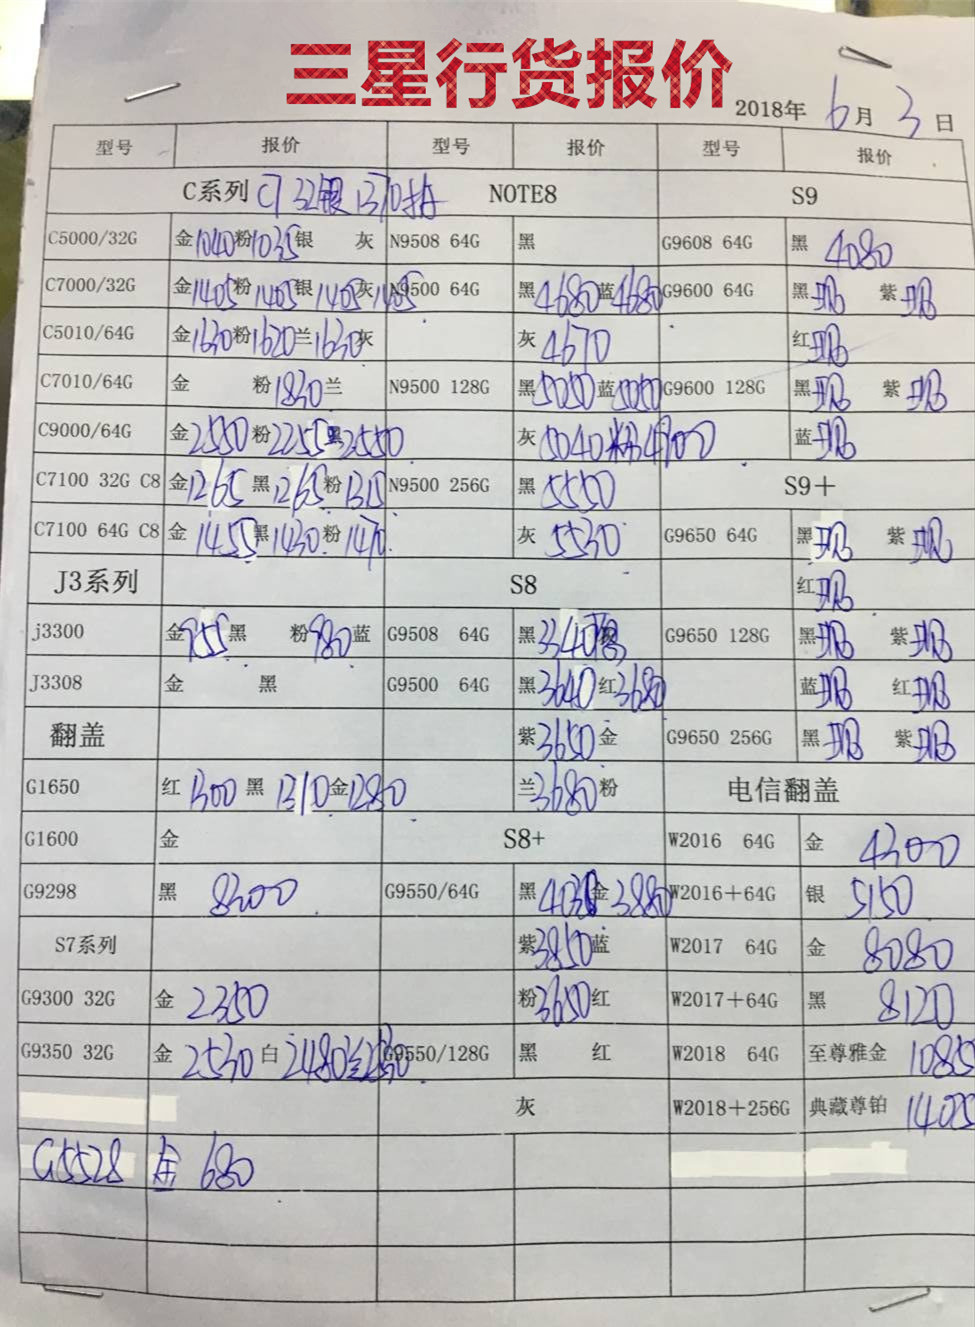 三星行货报价
2018年 6月 3日
型号 报价 型号 报价 型号 报价
C系列 C7 32银1370 NOTE8 S9
C5000/32G 金1040粉1035银 灰 N9508 64G 黑 G9608 64G 黑 4080
C7000/32G 金1405粉1405银1405灰1405 N9500 64G 黑4680蓝4680 G9600 64G 黑 紫
C5010/64G 金1630粉1620兰1630灰 灰4670 红
C7010/64G 金 粉1830兰 N9500 128G 黑5050蓝5050 G9600 128G 黑 紫
C9000/64G 金2550粉2255黑2550 灰5040粉4900 蓝
C7100 32G C8 金1265黑1265粉1315 N9500 256G 黑5550 S9+
C7100 64G C8 金1455黑1430粉1470 灰5530 G9650 64G 黑 紫
J3系列 S8 红
j3300 金955黑 粉980蓝 G9508 64G 黑3340 G9650 128G 黑 紫
J3308 金 黑 G9500 64G 黑3640红3680 蓝 红
翻盖 紫3650金 G9650 256G 黑 紫
G1650 红1300黑1310金1280 兰3680粉 电信翻盖
G1600 金 S8+ W2016 64G 金 4300
G9298 黑 8300 G9550/64G 黑 金3880 W2016+64G 银 5150
S7系列 紫3850蓝 W2017 64G 金 8080
G9300 32G 金 2350 粉3650红 W2017+64G 黑 8120
G9350 32G 金 2530白2480兰 G9550/128G 黑 红 W2018 64G 至尊雅金 1085
灰 W2018+256G 典藏尊铂 1405
G5528 金 680